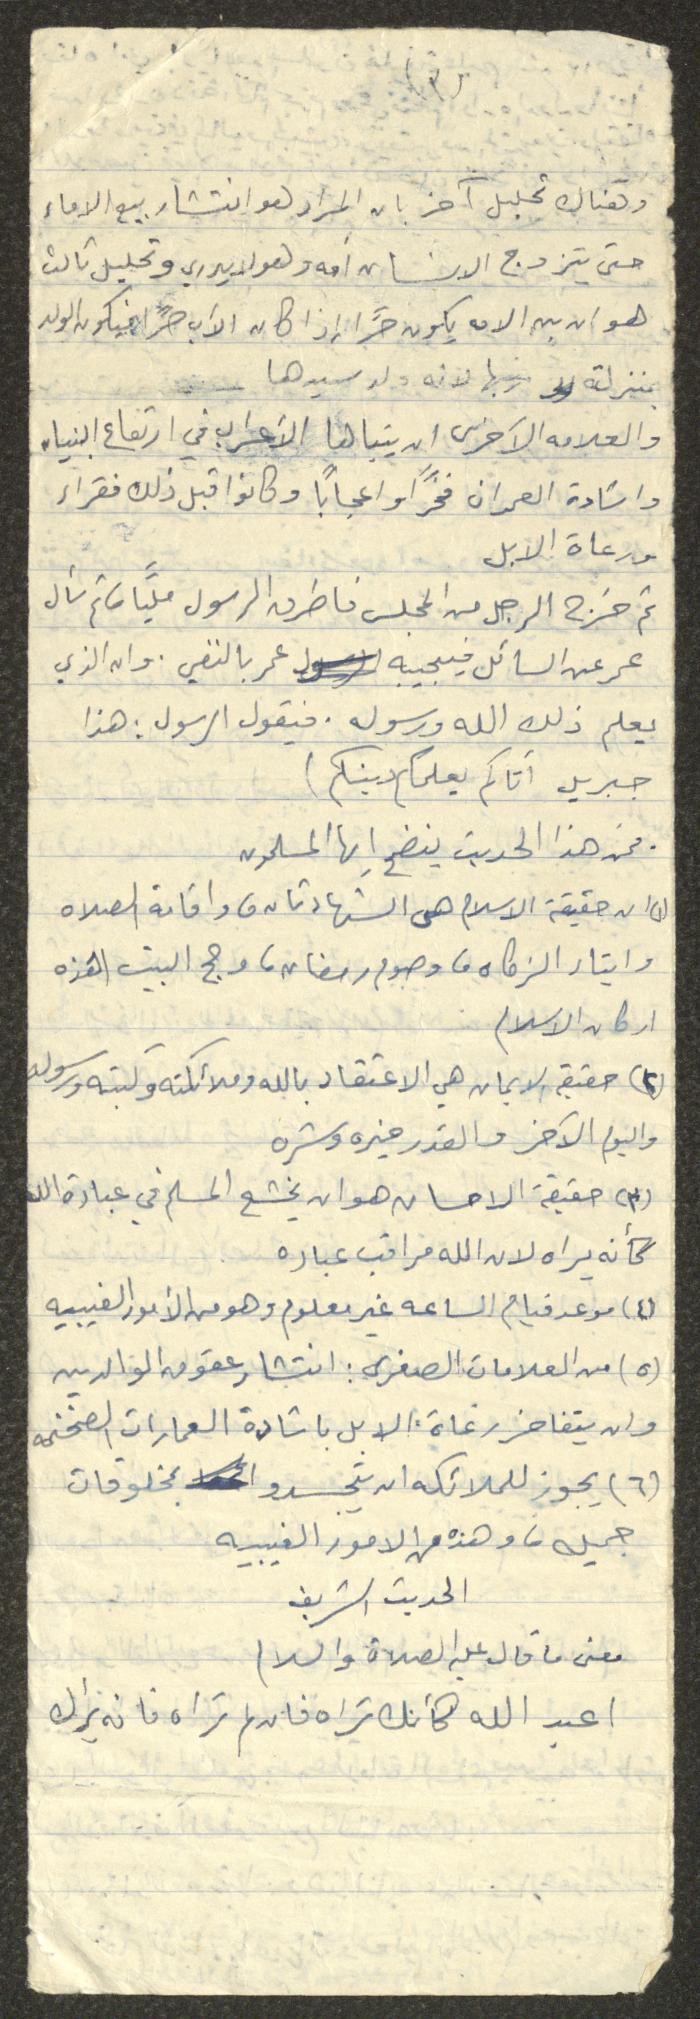 (٣)
وهناك تحليل آخر بان المراد هو انتشار بيع الاماء
حتى يتزوج الانسان أمه وهو لا يدري وتحليل ثالث
هو ان بن الامه يكون حرًا إذا كان الأب حرًا فيكون الولد
بمنزلة ربها لانه ولد سيدها
والعلامه الآخرى ان يتباها الأعراب في ارتفاع البنيان
واشادة العمران فخرًا واعجابًا وكانوا قبل ذلك فقراء
ورعاة الابل
ثم خرج الرجل من المجلس فاطرق الرسول مليًا، ثم سأل
عمر عن السائل فيجيبه عمر بالنفي. وان الذي
يعلم ذلك الله ورسوله. فيقول الرسول: هذا
جبريل أتاكم يعلمكم دينكم)
. فمن هذا الحديث يتضح ايها المسلمون
(١) ان حقيقة الاسلام هى الشهادتان، واقامة الصلاه
وايتاء الزكاه، وصوم رمضان، وحج البيت هذه
اركان الاسلام
(٢) حقيقة الايمان هي الاعتقاد بالله وملائكته وكتبه ورسوله
واليوم الآخر والقدر خيره وشره
(٣) حقيقة الاحسان هو ان يخشع المسلم في عبادة الله
كأنه يراه لان الله مراقب عباده
(٤) موعد قيام الساعه غير معلوم وهو من الأمور الغيبيه
(٥) من العلامات الصغرى: انتشار عقوق الوالدين
وان يتفاخر رعاة الابل باشادة العمارات الضخمه
(٦) يجوز للملائكه ان يتجسدوا بمخلوقات
جميله، وهذه من الامور الغيبيه
الحديث الشريف
معنى ما قال عليه الصلاة والسلام
اعبد الله كأنك تراه فان لم تراه فانه يراك